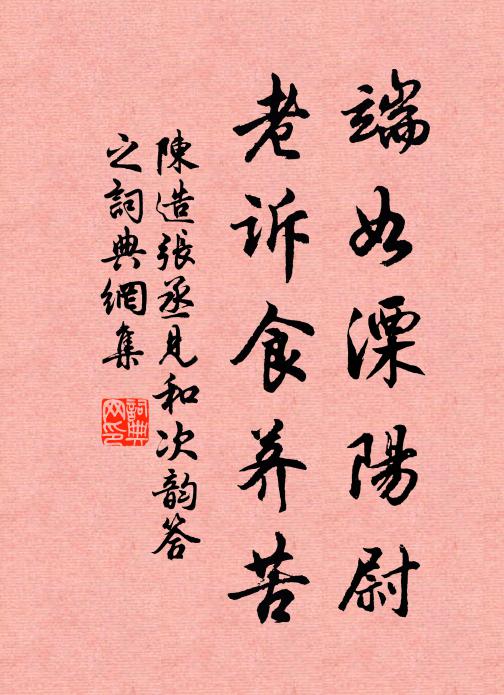 端如溧陽尉
老訴食荠苦
陳造張丞見和次韵答
之詞典網集
詞典
网印